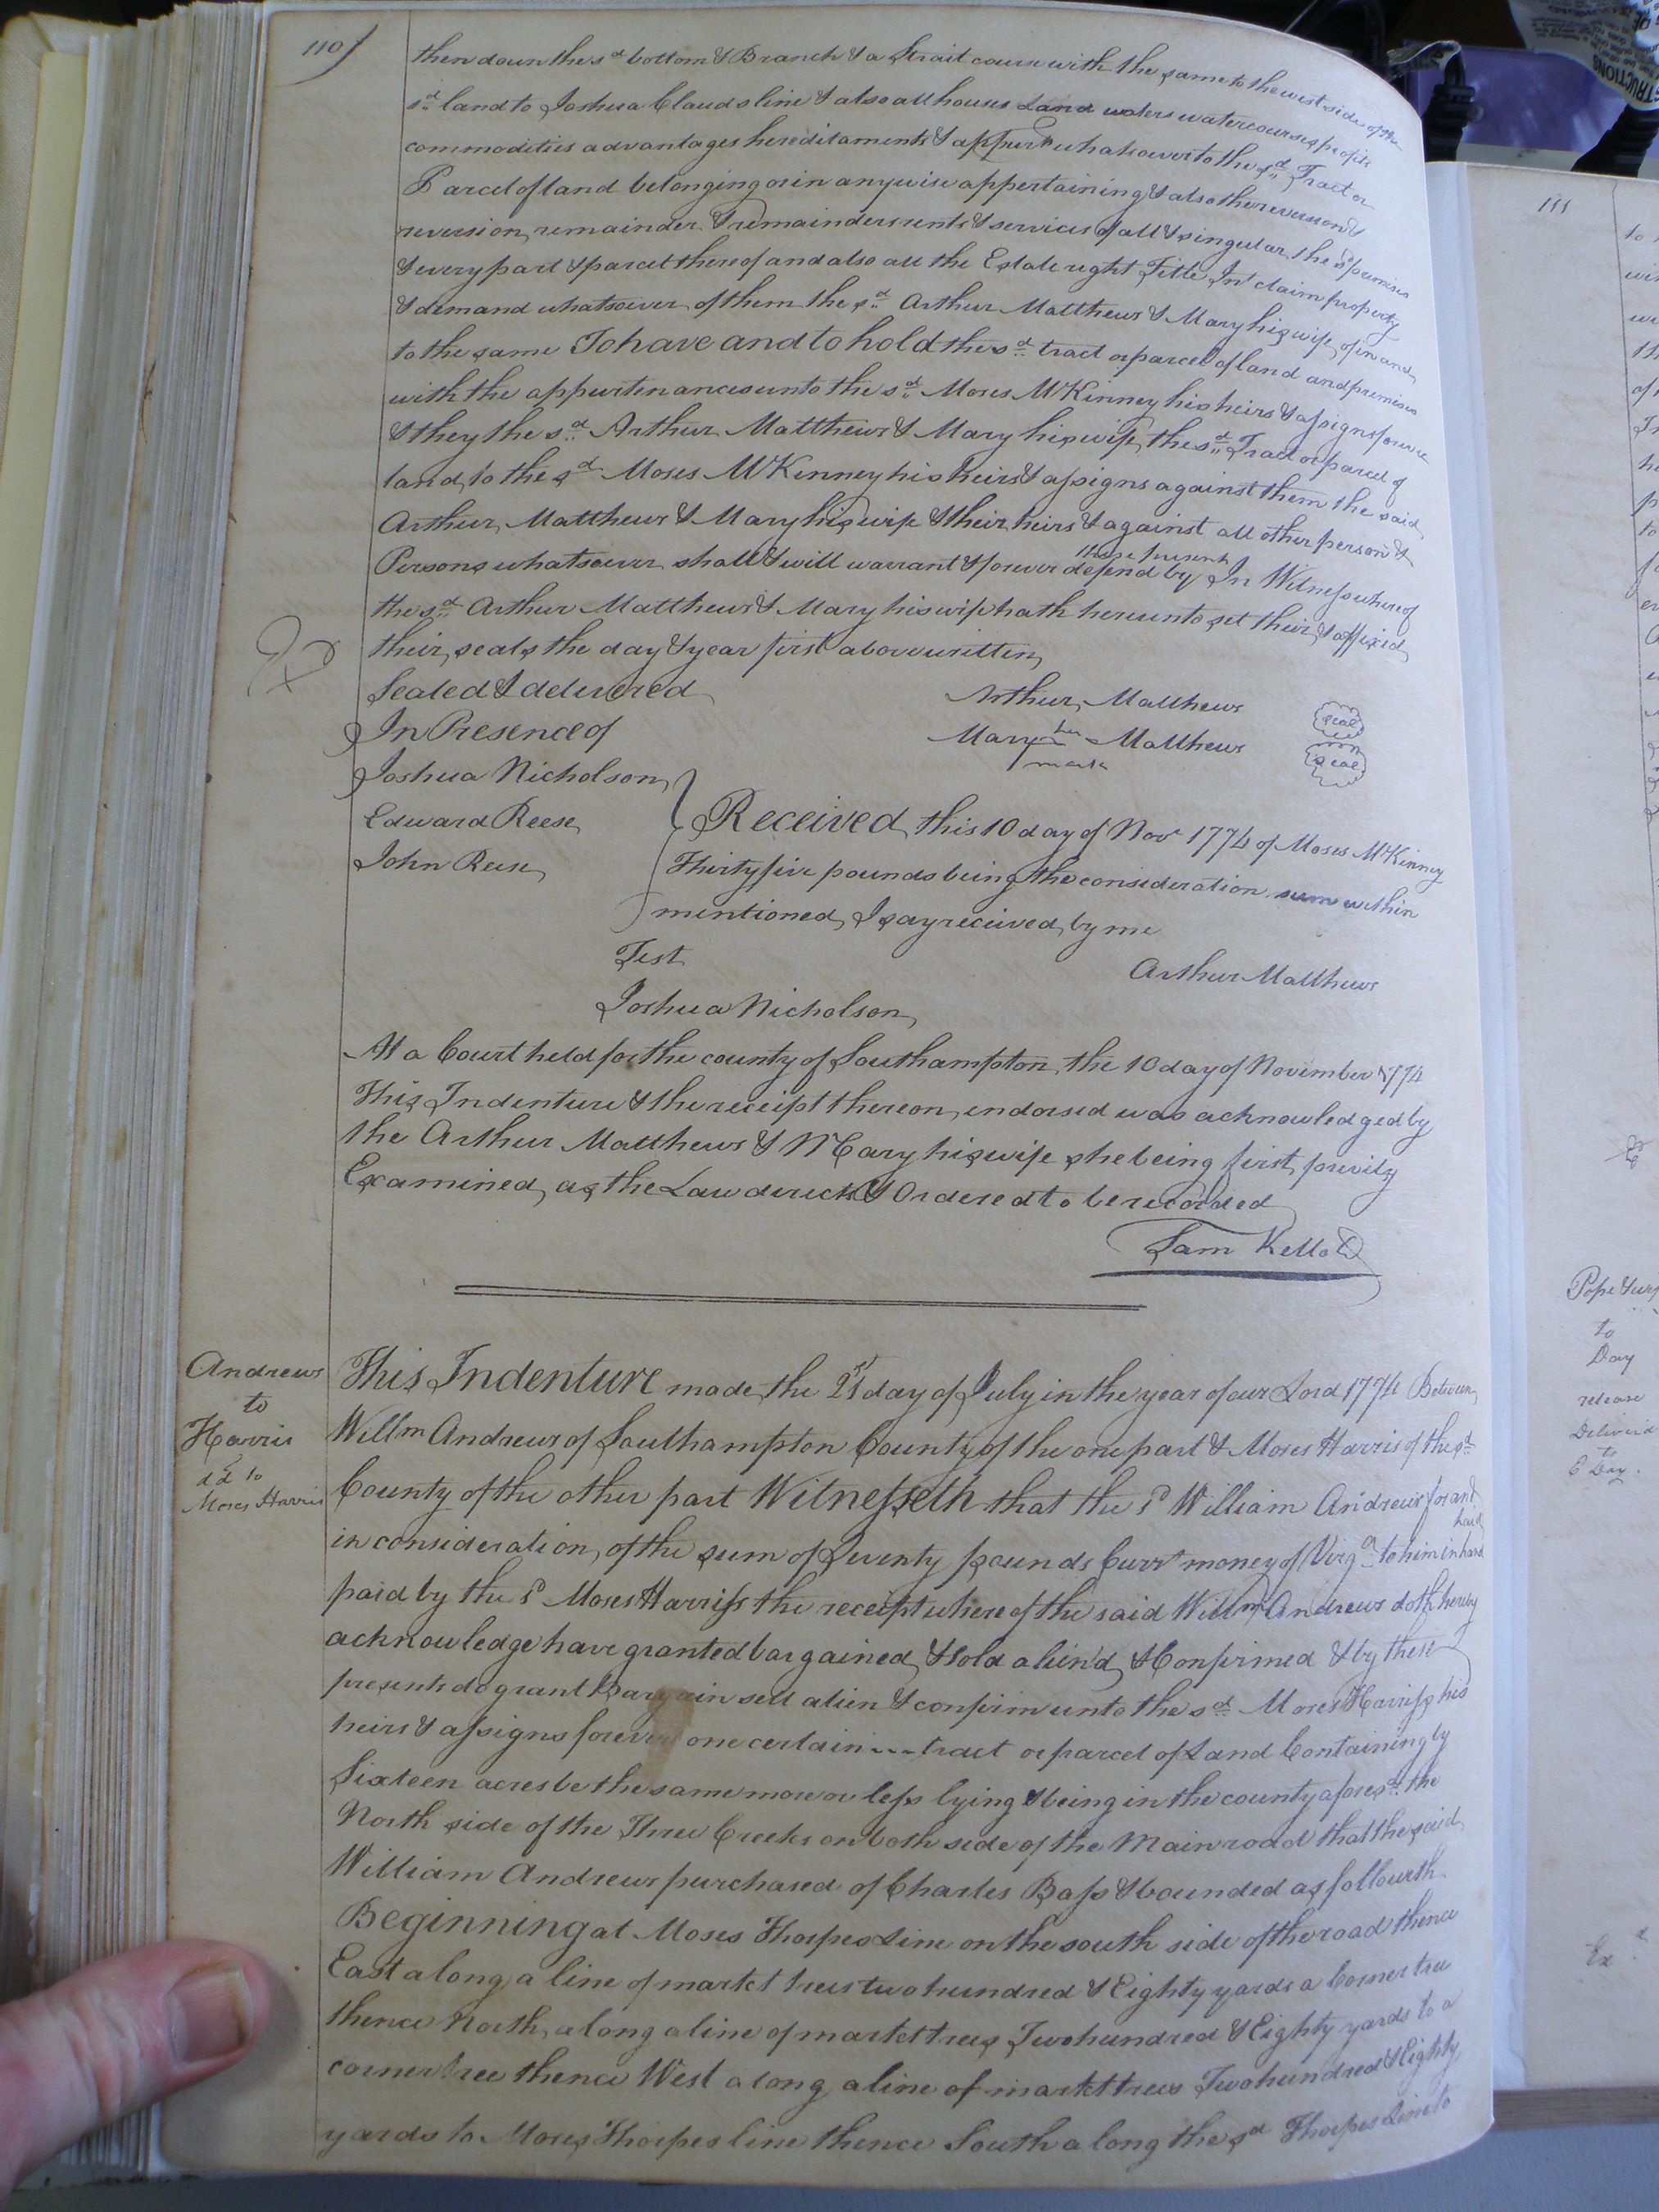 110
then down the sd bottom & Branch & a strait course with the same to the west side of the
sd land to Joshua Clauds line & also all houses Land waters watercourses profits
commodities advantages hereditaments & appurts whatsoever to the sd Tract or
Parcel of land belonging or in anywise appertaining & also the reversion &
reversion remainder & remainders rents & services of all & singular the sd premises
& every part & parcel thereof and also all the Estate right Title Int claim property
& demand whatsoever of them the sd Arthur Matthews & Mary his wife of in and
to the same To have and to hold the sd tract or parcel of land and premises
with the appurtinances unto the sd Moses McKinney his heirs & assigns forever
& they the sd Arthur Matthews & Mary his wife the sd Tract or parcel of
land to the sd Moses McKinney his heirs & assigns against them the said
Arthur Matthews & Mary his wife & their heirs & against all other person &
Persons whatsoever shall & will warrant & forever defend by these presents In Witness whereof
the sd Arthur Matthews & Mary his wife hath hereunto set their & affixed
their seals the day & year first above written
Sealed & delivered
In Presence of
Arthur Matthews seal
Mary her mark Matthews seal
Joshua Nicholson
Edward Reese
John Reese
Received this 10 day of Novr 1774 of Moses McKinney
Thirty five pounds being the consideration sum within
mentioned I say received by me
Test
Arthur Matthews
Joshua Nicholson
At a Court held for the county of Southampton the 10 day of November 1774
This Indenture & the receipt thereon endorsed was acknowledged by
the Arthur Matthews & Mary his wife she being first privily
Examined as the Law directs & Ordered to be recorded
Sam Kello
Andrews
to
Harris
dd to
Moses Harris
This Indenture made the 21st day of July in the year of our Lord 1774 Between
Willm Andrews of Southampton County of the one part & Moses Harris of the sd
County of the other part Witnesseth that the sd William Andrews for and
in consideration of the sum of Seventy pounds Currt money of Virga to him in hand
paid by the sd Moses Harriss the receipt whereof the said Willm Andrews doth hereby
acknowledge have granted bargained & sold alien'd & Confirmed & by these
presents do grant Bargain sell alien & confirm unto the sd Moses Harriss his
heirs & assigns forever one certain tract or parcel of Land Containing by
Sixteen acres be the same more or less lying & being in the county aforesd the
North side of the Three Creeks on both side of the Main road that the said
William Andrews purchased of Charles Bass & bounded as followeth
Beginning at Moses Thorpes Line on the south side of the road thence
East along a line of markt trees two hundred & Eighty yards a Corner tree
thence North along a line of markt trees Two hundred & Eighty yards to a
corner tree thence West along a line of markt trees Two hundred & Eighty
yards to Moses Thorpes line thence South along the sd Thorpes Line to
111
Pope &
to
Day
release
Deliverd
to
E Day
Ex